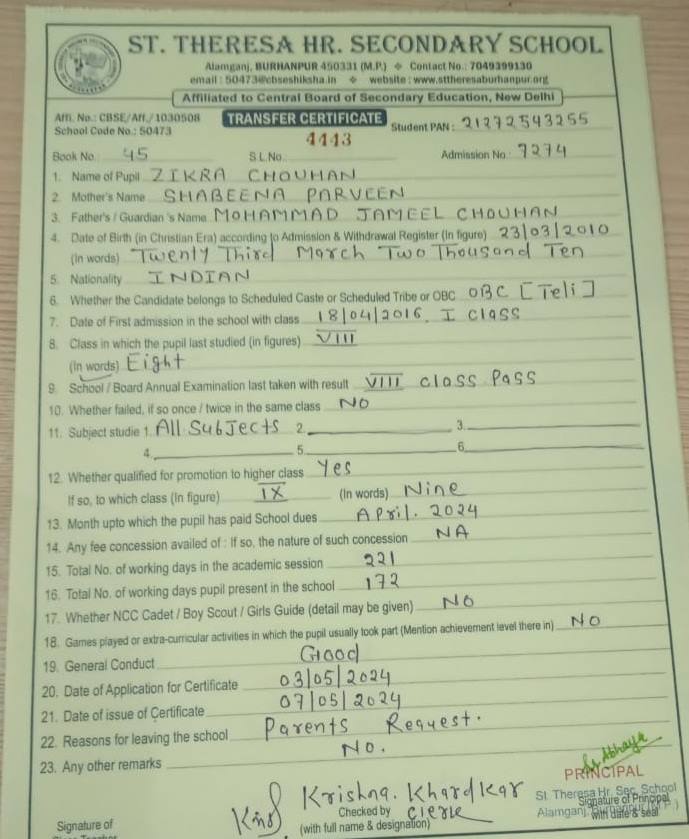 ST. THERESA HR. SECONDARY SCHOOL
Alamganj, BURHANPUR 450331 (M.P.) ❖ Contact No.: 7049399130
email : 50473@cbseshiksha.in ❖ website : www.sttheresaburhanpur.org
Affiliated to Central Board of Secondary Education, New Delhi
Affi. No.: CBSE/Aff./1030508 TRANSFER CERTIFICATE Student PAN : 21272543255
School Code No.: 50473
4443
Book No. 45 S L.No. Admission No. 7274
1. Name of Pupil ZIKRA CHOUHAN
2. Mother's Name SHABEENA PARVEEN
3. Father's / Guardian 's Name MOHAMMAD JAMEEL CHOUHAN
4. Date of Birth (in Christian Era) according to Admission & Withdrawal Register (In figure) 23/03/2010
(In words) Twenty Third March Two Thousand Ten
5. Nationality INDIAN
6. Whether the Candidate belongs to Scheduled Caste or Scheduled Tribe or OBC OBC [Teli]
7. Date of First admission in the school with class 18/04/2016. I class
8. Class in which the pupil last studied (in figures) VIII
(In words) Eight
9. School / Board Annual Examination last taken with result VIII class Pass
10. Whether failed, if so once / twice in the same class NO
11. Subject studie 1. All Subjects 2. 3.
4. 5. 6.
12. Whether qualified for promotion to higher class Yes
If so, to which class (In figure) IX (In words) Nine
13. Month upto which the pupil has paid School dues April. 2024
14. Any fee concession availed of : If so, the nature of such concession NA
15. Total No. of working days in the academic session 221
16. Total No. of working days pupil present in the school 172
17. Whether NCC Cadet / Boy Scout / Girls Guide (detail may be given) NO
18. Games played or extra-curricular activities in which the pupil usually took part (Mention achievement level there in) NO
19. General Conduct Good
20. Date of Application for Certificate 03/05/2024
21. Date of issue of Certificate 07/05/2024
22. Reasons for leaving the school Parents Request.
23. Any other remarks No.
PRINCIPAL
Krishna. Khardkar St. Theresa Hr. Sec. School
Checked by clerk Signature of Principal
Signature of (with full name & designation) Alamganj, Burhanpur (M.P.) with date & seal